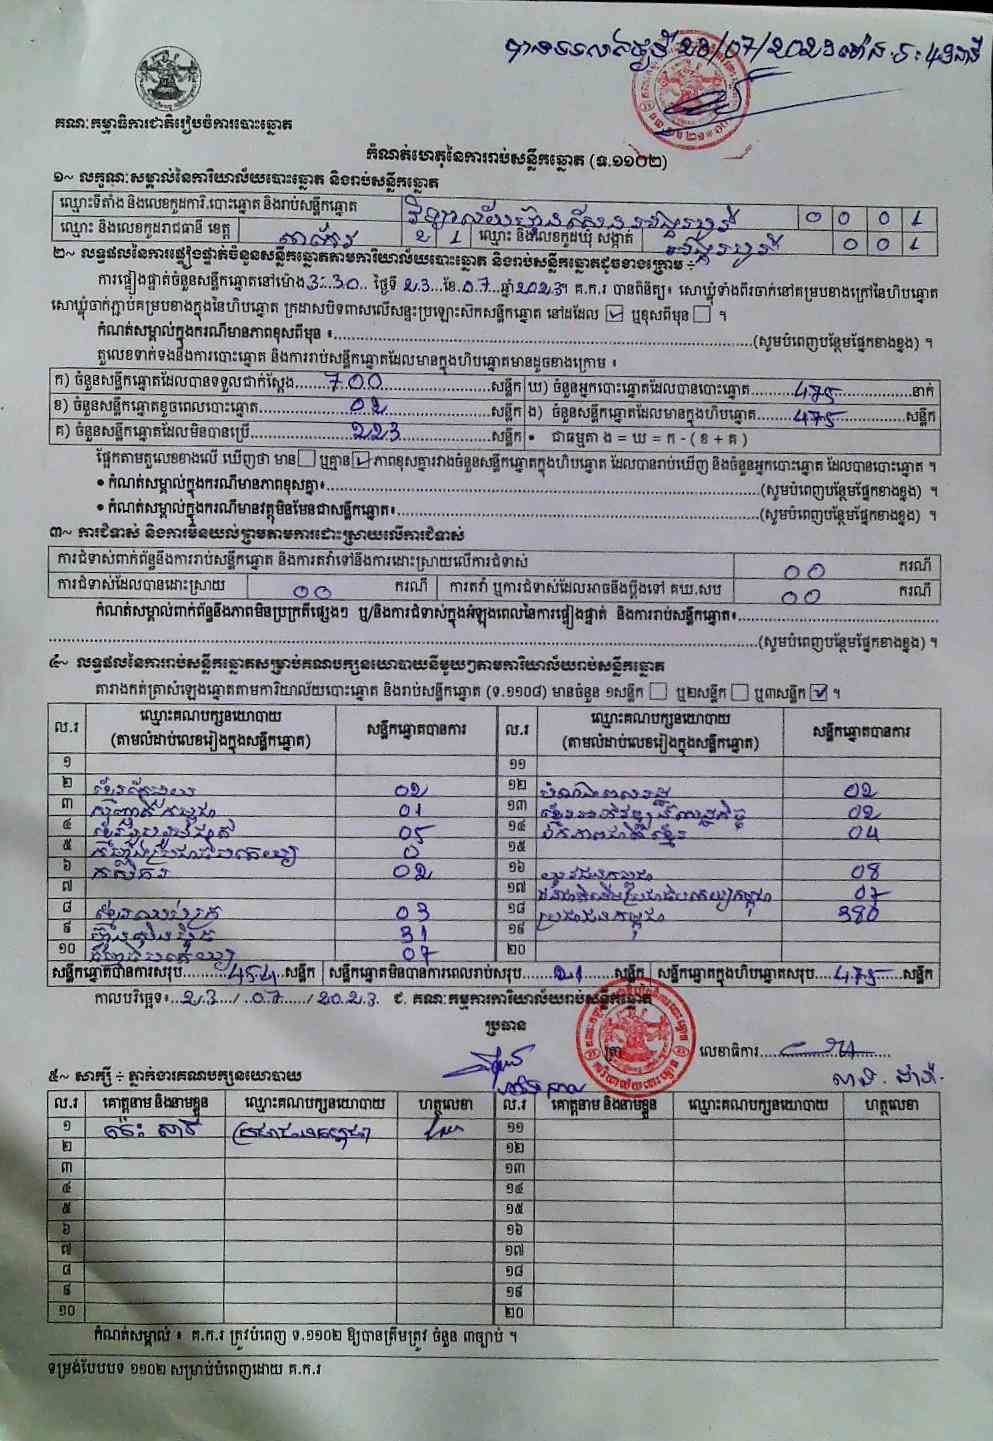 23/07/2023
គណៈកម្មាធិការជាតិរៀបចំការបោះឆ្នោត
កំណត់ហេតុនៃការរាប់សន្លឹកឆ្នោត (ទ.១១០២)
១~ លក្ខណៈសម្គាល់នៃការិយាល័យបោះឆ្នោត និងរាប់សន្លឹកឆ្នោត
ឈ្មោះទីតាំង និងលេខកូដការិ.បោះឆ្នោត និងរាប់សន្លឹកឆ្នោត 0 0 0 1
ឈ្មោះ និងលេខកូដរាជធានី ខេត្ត តាកែវ 2 1 ឈ្មោះ និងលេខកូដឃុំ សង្កាត់ អង្គរបូរី 0 0 1
២~ លទ្ធផលនៃការផ្ទៀងផ្ទាត់ចំនួនសន្លឹកឆ្នោតតាមការិយាល័យបោះឆ្នោត និងរាប់សន្លឹកឆ្នោតដូចខាងក្រោម ÷
ការផ្ទៀងផ្ទាត់ចំនួនសន្លឹកឆ្នោតនៅម៉ោង 3:30 ថ្ងៃទី 23 ខែ 07 ឆ្នាំ 2023។ គ.ក.រ បានពិនិត្យ៖ សោឃ្លុំទាំងពីរចាក់នៅគម្របខាងក្រៅនៃហិបឆ្នោត
សោឃ្លុំចាក់ភ្ជាប់គម្របខាងក្នុងនៃហិបឆ្នោត ក្រដាសបិទពាសលើសន្ទះប្រឡោះស៊កសន្លឹកឆ្នោត នៅដដែល ☑ ឬខុសពីមុន ☐ ។
កំណត់សម្គាល់ក្នុងករណីមានភាពខុសពីមុន ៖ (សូមបំពេញបន្ថែមផ្នែកខាងខ្នង) ។
តួលេខទាក់ទងនឹងការបោះឆ្នោត និងការរាប់សន្លឹកឆ្នោតដែលមានក្នុងហិបឆ្នោតមានដូចខាងក្រោម ៖
ក) ចំនួនសន្លឹកឆ្នោតដែលបានទទួលជាក់ស្តែង 700 សន្លឹក ឃ) ចំនួនអ្នកបោះឆ្នោតដែលបានបោះឆ្នោត 475 នាក់
ខ) ចំនួនសន្លឹកឆ្នោតខូចពេលបោះឆ្នោត 02 សន្លឹក ង) ចំនួនសន្លឹកឆ្នោតដែលមានក្នុងហិបឆ្នោត 475 សន្លឹក
គ) ចំនួនសន្លឹកឆ្នោតដែលមិនបានប្រើ 223 សន្លឹក • ជាធម្មតា ង = ឃ = ក - ( ខ + គ )
ផ្អែកតាមតួលេខខាងលើ ឃើញថា មាន ☐ ឬគ្មាន ☑ ភាពខុសគ្នារវាងចំនួនសន្លឹកឆ្នោតក្នុងហិបឆ្នោត ដែលបានរាប់ឃើញ និងចំនួនអ្នកបោះឆ្នោត ដែលបានបោះឆ្នោត ។
• កំណត់សម្គាល់ក្នុងករណីមានភាពខុសគ្នា៖ (សូមបំពេញបន្ថែមផ្នែកខាងខ្នង) ។
• កំណត់សម្គាល់ក្នុងករណីមានវត្ថុមិនមែនជាសន្លឹកឆ្នោត៖ (សូមបំពេញបន្ថែមផ្នែកខាងខ្នង) ។
៣~ ការជំទាស់ និងការមិនយល់ព្រមតាមការដោះស្រាយលើការជំទាស់
ការជំទាស់ពាក់ព័ន្ធនឹងការរាប់សន្លឹកឆ្នោត និងការតវ៉ាទៅនឹងការដោះស្រាយលើការជំទាស់ 00 ករណី
ការជំទាស់ដែលបានដោះស្រាយ 00 ករណី ការតវ៉ា ឬការជំទាស់ដែលអាចនឹងប្តឹងទៅ គឃ.សប 00 ករណី
កំណត់សម្គាល់ពាក់ព័ន្ធនឹងភាពមិនប្រក្រតីផ្សេងៗ ឬ/និងការជំទាស់ក្នុងអំឡុងពេលនៃការផ្ទៀងផ្ទាត់ និងការរាប់សន្លឹកឆ្នោត៖
(សូមបំពេញបន្ថែមផ្នែកខាងខ្នង) ។
៤~ លទ្ធផលនៃការរាប់សន្លឹកឆ្នោតសម្រាប់គណបក្សនយោបាយនីមួយៗតាមការិយាល័យរាប់សន្លឹកឆ្នោត
តារាងកត់ត្រាសំឡេងឆ្នោតតាមការិយាល័យបោះឆ្នោត និងរាប់សន្លឹកឆ្នោត (ទ.១១០៨) មានចំនួន ១សន្លឹក ☐ ឬ២សន្លឹក ☐ ឬ៣សន្លឹក ☑ ។
ល.រ ឈ្មោះគណបក្សនយោបាយ (តាមលំដាប់លេខរៀងក្នុងសន្លឹកឆ្នោត) សន្លឹកឆ្នោតបានការ ល.រ ឈ្មោះគណបក្សនយោបាយ (តាមលំដាប់លេខរៀងក្នុងសន្លឹកឆ្នោត) សន្លឹកឆ្នោតបានការ
១ ១១
២ 02 ១២ 02
៣ 01 ១៣ 02
៤ 05 ១៤ 04
៥ 0 ១៥
៦ កសិករ 02 ១៦ 08
៧ ១៧ 07
៨ 03 ១៨ ប្រជាជនកម្ពុជា 380
៩ ហ៊្វុនស៊ិនប៉ិច 31 ១៩
១០ 07 ២០
សន្លឹកឆ្នោតបានការសរុប 454 សន្លឹក សន្លឹកឆ្នោតមិនបានការពេលរាប់សរុប 21 សន្លឹក សន្លឹកឆ្នោតក្នុងហិបឆ្នោតសរុប 475 សន្លឹក
កាលបរិច្ឆេទ៖ 23 / 07 / 2023 ជ. គណៈកម្មការការិយាល័យរាប់សន្លឹកឆ្នោត
ប្រធាន
ត្រា លេខាធិការ
៥~ សាក្សី ÷ ភ្នាក់ងារគណបក្សនយោបាយ
ល.រ គោត្តនាម និងនាមខ្លួន ឈ្មោះគណបក្សនយោបាយ ហត្ថលេខា ល.រ គោត្តនាម និងនាមខ្លួន ឈ្មោះគណបក្សនយោបាយ ហត្ថលេខា
១ ប្រជាជនកម្ពុជា ១១
២ ១២
៣ ១៣
៤ ១៤
៥ ១៥
៦ ១៦
៧ ១៧
៨ ១៨
៩ ១៩
១០ ២០
កំណត់សម្គាល់ ៖ គ.ក.រ ត្រូវបំពេញ ទ.១១០២ ឱ្យបានត្រឹមត្រូវ ចំនួន ៣ច្បាប់ ។
ទម្រង់បែបបទ ១១០២ សម្រាប់បំពេញដោយ គ.ក.រ